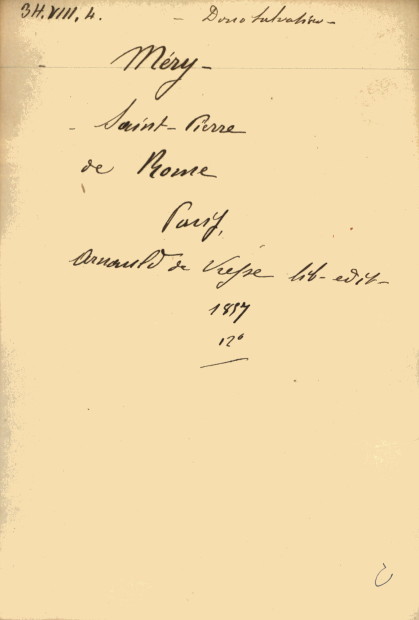 34.VIII.4. - Dono Salvatico -
Méry -
- Saint-Pierre
de Rome
Paris,
Arnauld de Vresse lib-edit-
1857
12°